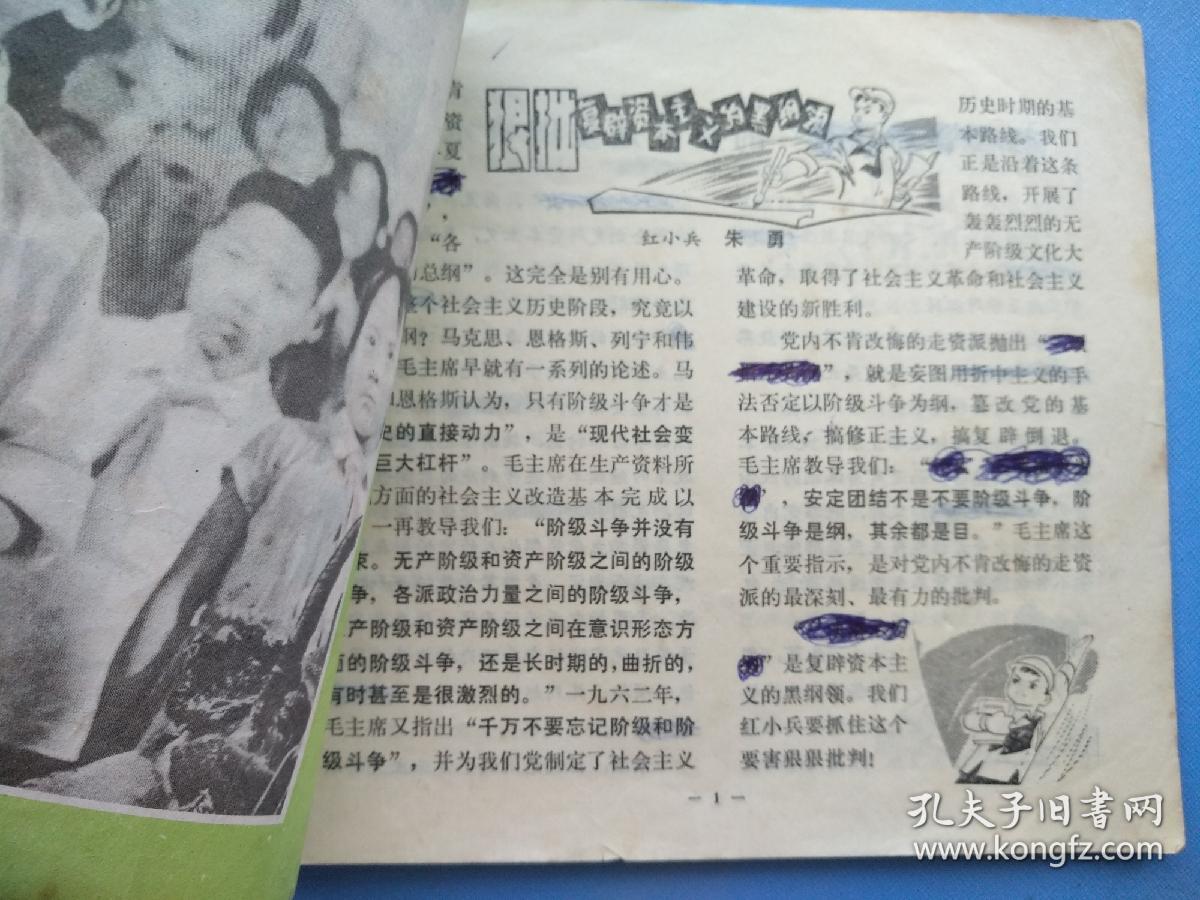 狠批
复辟资本主义的黑纲领
红小兵 朱勇
肯
资
夏
“各
总纲”。这完全是别有用心。
个社会主义历史阶段，究竟以
纲？马克思、恩格斯、列宁和伟
毛主席早就有一系列的论述。马
和恩格斯认为，只有阶级斗争才是
史的直接动力”，是“现代社会变
巨大杠杆”。毛主席在生产资料所
方面的社会主义改造基本完成以
一再教导我们：“阶级斗争并没有
束。无产阶级和资产阶级之间的阶级
争，各派政治力量之间的阶级斗争，
产阶级和资产阶级之间在意识形态方
面的阶级斗争，还是长时期的，曲折的，
有时甚至是很激烈的。”一九六二年，
毛主席又指出“千万不要忘记阶级和阶
级斗争”，并为我们党制定了社会主义
历史时期的基
本路线。我们
正是沿着这条
路线，开展了
轰轰烈烈的无
产阶级文化大
革命，取得了社会主义革命和社会主义
建设的新胜利。
党内不肯改悔的走资派抛出“
”，就是妄图用折中主义的手
法否定以阶级斗争为纲，篡改党的基
本路线，搞修正主义，搞复辟倒退。
毛主席教导我们：“
”，安定团结不是不要阶级斗争，阶
级斗争是纲，其余都是目。”毛主席这
个重要指示，是对党内不肯改悔的走资
派的最深刻、最有力的批判。
”是复辟资本主
义的黑纲领。我们
红小兵要抓住这个
要害狠狠批判！
— 1 —
孔夫子旧书网
www.kongfz.com